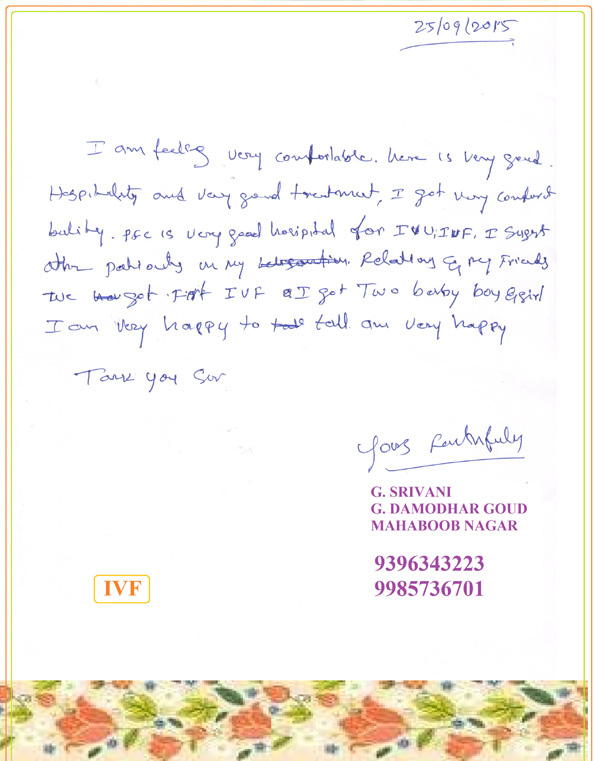 25/09/2015
I am feeling very comfortable. here is very good.
Hospitality and very good treatment, I got very comfort
bality. PFC is very good hospital for IVU, IVF, I Sugest
other patients in my Relations & my Friends
we got First IVF & I got Two barby boy & girl
I am very happy to tall am very happy
Tank you Sir
Yours Faithfuly
G. SRIVANI
G. DAMODHAR GOUD
MAHABOOB NAGAR
9396343223
9985736701
IVF